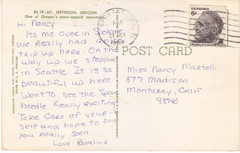 MT. JEFFERSON, OREGON
One of Oregon's
Hi Nancy
Its me over in
We Really had a
trip up here. On the
way up we stopped
in Seattle It is so
beautiful up here
Went to see the Space
Needle Really exciting
Take care of your-
self and hope to see
you Really soon
Love Rosalind
POST CARD
Miss Nancy Martelli
377 Madison
Monterey, Calif
93940